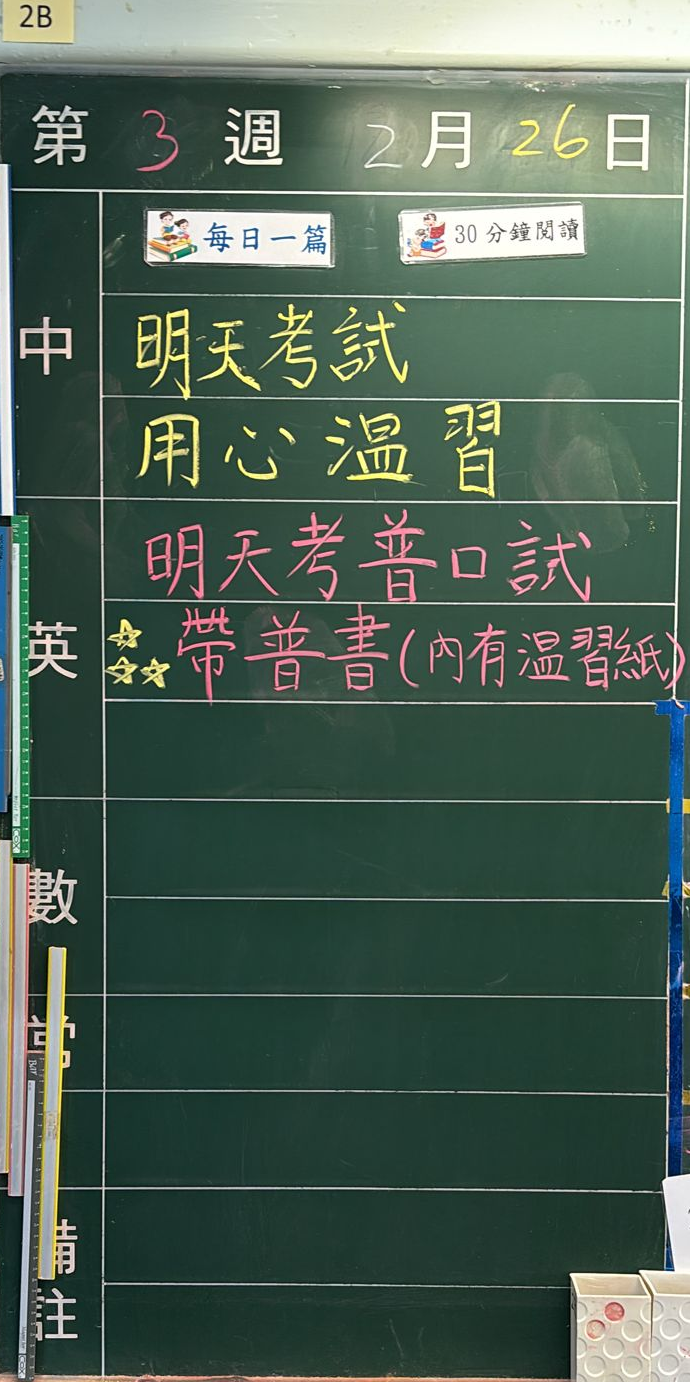 2B
第 3 週 2月 26日
每日一篇 30分鐘閱讀
中
明天考試
用心溫習
明天考普口試
英
帶普書(內有溫習紙)
數
常
備註